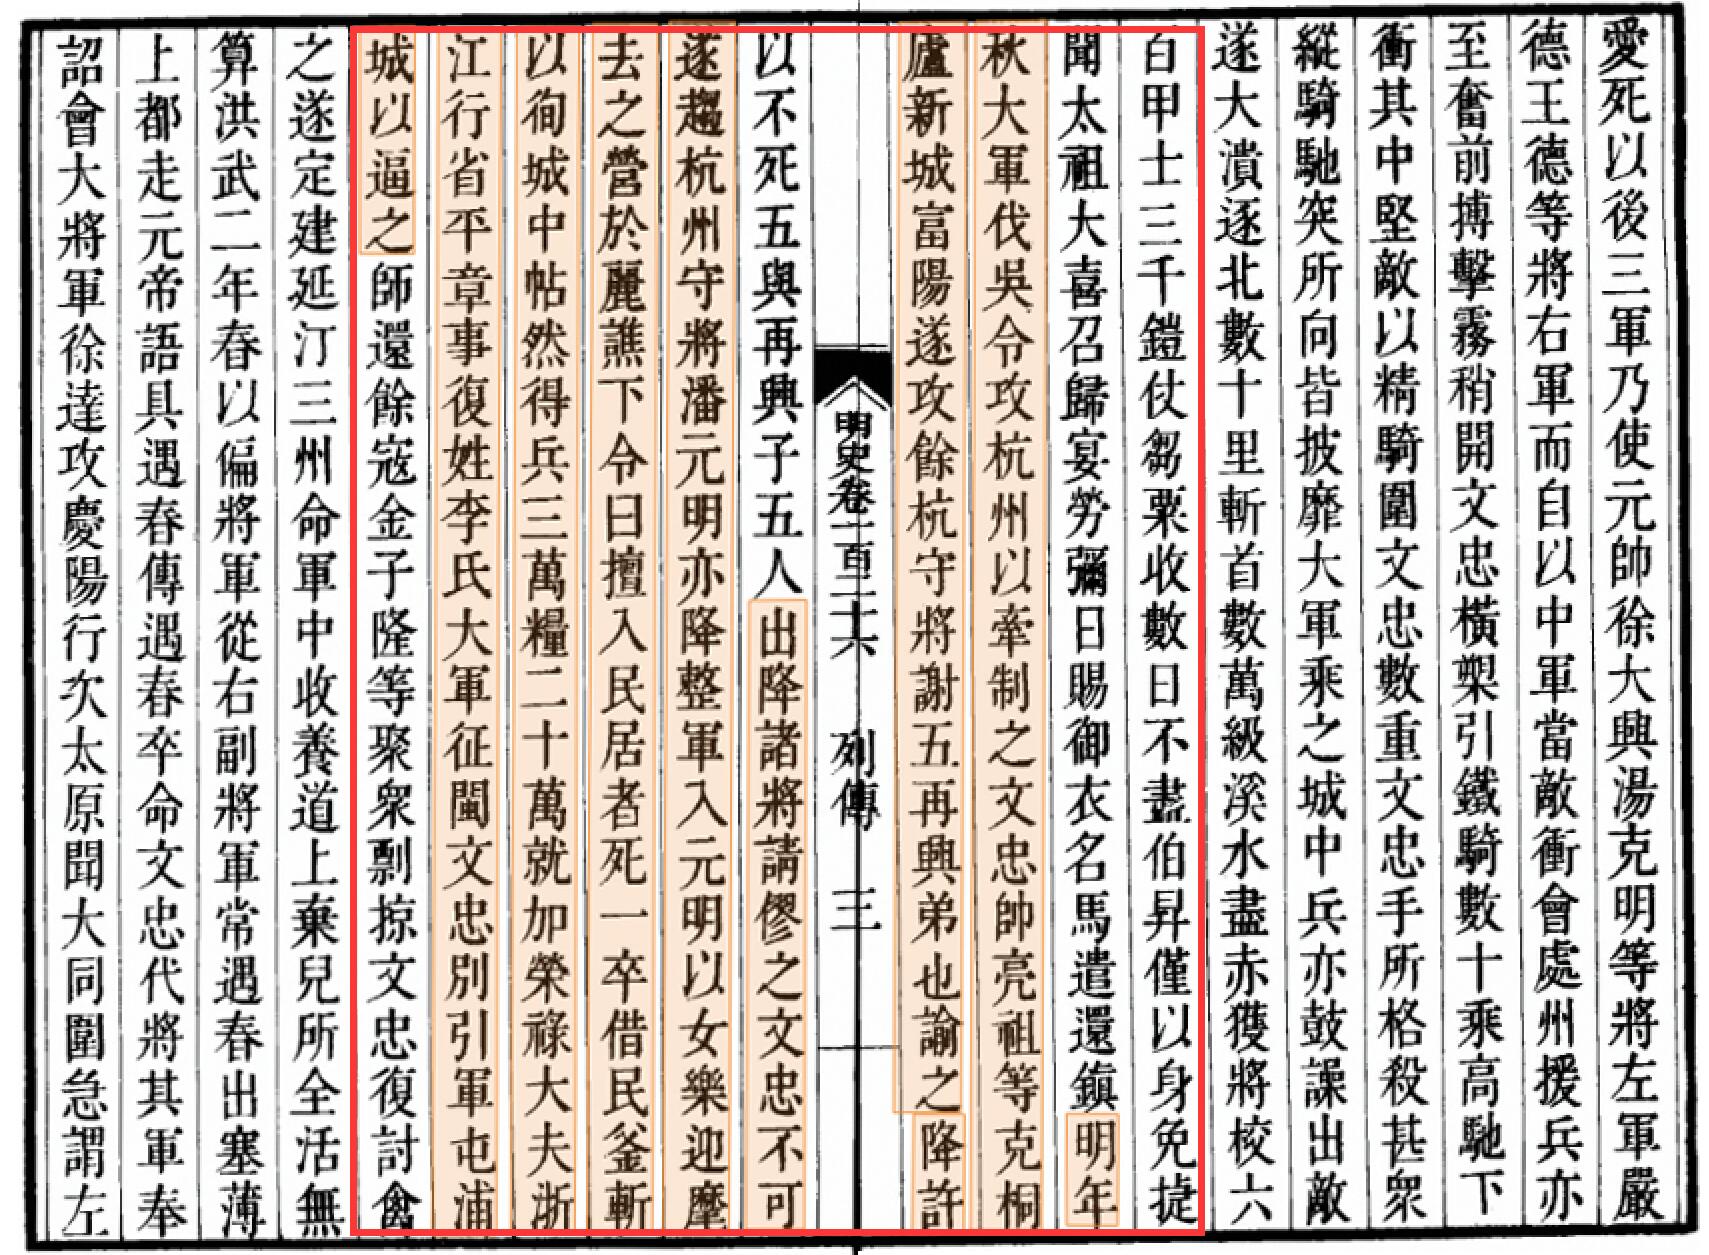 愛死以後三軍乃使元帥徐大興湯克明等將左軍嚴
德王德等將右軍而自以中軍當敵衝會處州援兵亦
至奮前搏擊霧稍開文忠橫槊引鐵騎數十乘高馳下
衝其中堅敵以精騎圍文忠數重文忠手所格殺甚眾
縱騎馳突所向皆披靡大軍乘之城中兵亦鼓譟出敵
遂大潰逐北數十里斬首數萬級溪水盡赤獲將校六
百甲士三千鎧仗芻粟收數日不盡伯昇僅以身免捷
聞太祖大喜召歸宴勞彌日賜御衣名馬遣還鎮明年
秋大軍伐吳令攻杭州以牽制之文忠帥亮祖等克桐
廬新城富陽遂攻餘杭守將謝五再興弟也諭之降許
明史卷一百二十六 列傳 三
以不死五與再興子五人出降諸將請僇之文忠不可
遂趨杭州守將潘元明亦降整軍入元明以女樂迎麾
去之營於麗譙下令曰擅入民居者死一卒借民釜斬
以徇城中帖然得兵三萬糧二十萬就加榮祿大夫浙
江行省平章事復姓李氏大軍征閩文忠別引軍屯浦
城以逼之師還餘寇金子隆等聚眾剽掠文忠復討禽
之遂定建延汀三州命軍中收養道上棄兒所全活無
算洪武二年春以偏將軍從右副將軍常遇春出塞薄
上都走元帝語具遇春傳遇春卒命文忠代將其軍奉
詔會大將軍徐達攻慶陽行次太原聞大同圍急謂左